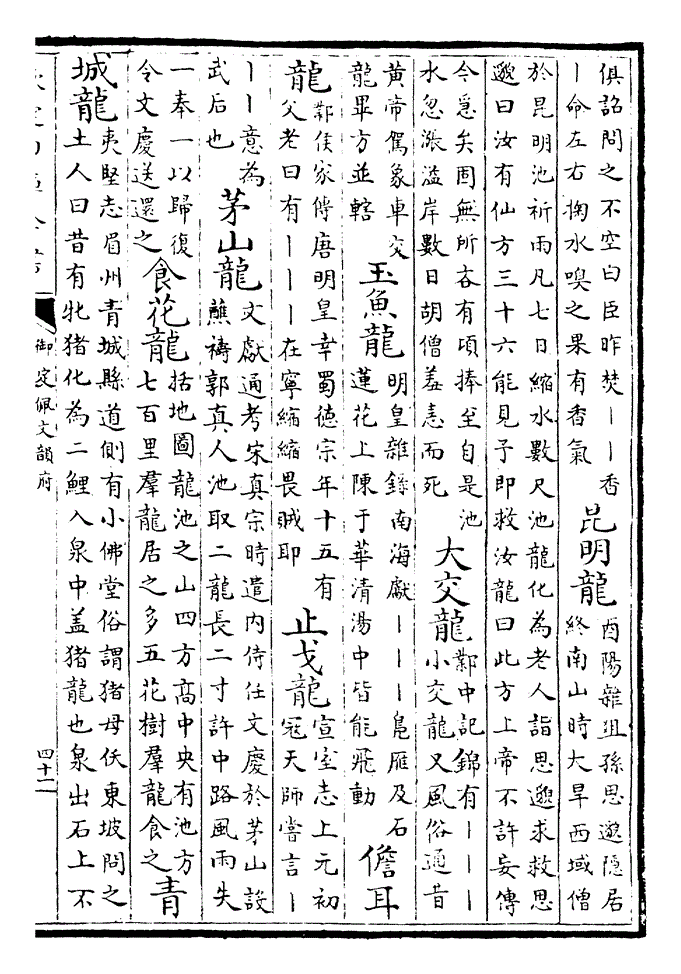 俱詔問之不空曰臣昨焚｜｜香
｜命左右掬水噀之果有香氣
昆明龍
酉陽雜俎孫思邈隱居
終南山時大旱西域僧
於昆明池祈雨凡七日縮水數尺池龍化為老人詣思邈求救思
邈曰汝有仙方三十六能見予即救汝龍曰此方上帝不許妄傳
今急矣固無所吝有頃捧至自是池
水忽漲溢岸數日胡僧羞恚而死
大交龍
鄴中記錦有｜｜｜
小交龍又風俗通昔
黃帝駕象車交
龍畢方並轄
玉魚龍
明皇雜錄南海獻｜｜｜鳧雁及石
蓮花上陳于華清湯中皆能飛動
儋耳
龍
鄴侯家傳唐明皇幸蜀德宗年十五有
父老曰有｜｜｜在寧縮縮畏賊耶
止戈龍
宣室志上元初
冦天師嘗言｜
｜｜意為
武后也
茅山龍
文獻通考宋真宗時遣内侍任文慶於茅山設
醮禱郭真人池取二龍長二寸許中路風雨失
一奉一以歸復
令文慶送還之
食花龍
括地圖龍池之山四方高中央有池方
七百里羣龍居之多五花樹羣龍食之
青
城龍
夷堅志眉州青城縣道側有小佛堂俗謂猪母仸東坡問之
土人曰昔有牝猪化為二鯉入泉中盖猪龍也泉出石上不
御定佩文韻府
四十二